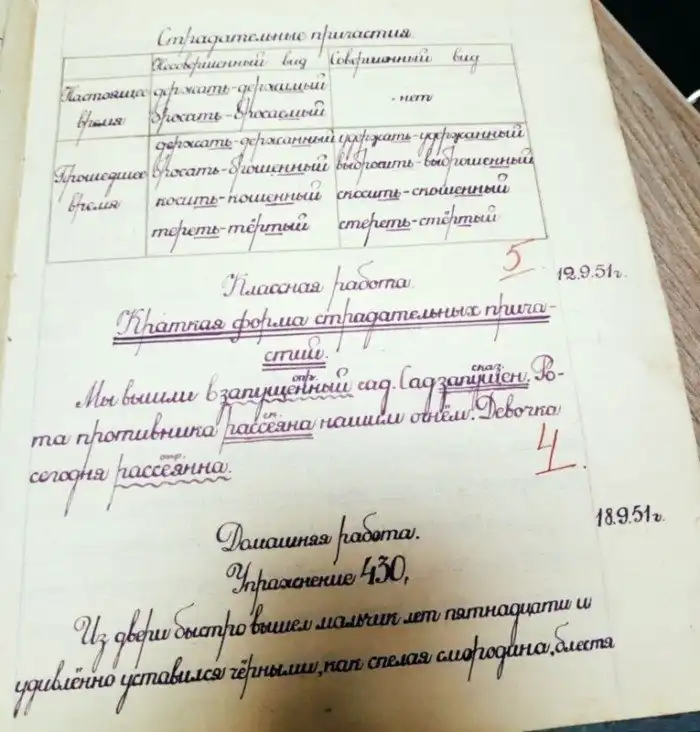 Страдательные причастия.
Несовершенный вид Совершенный вид
Настоящее время
держать-держимый
бросать-бросаемый
- нет
Прошедшее время
держать-держанный удержать-удержанный
бросать-брошенный выбросить-выброшенный
косить-кошенный скосить-скошенный
тереть-тёртый стереть-стёртый
5
12.9.51г.
Классная работа.
Краткая форма страдательных прича-
стий.
опр. сказ.
Мы вышли в запущенный сад. Сад запущен. Ро-
ск.
та противника рассеяна нашим огнём. Девочка
опр.
сегодня рассеянна.
4
18.9.51г.
Домашняя работа.
Упражнение 430.
Из двери быстро вышел мальчик лет пятнадцати и
удивлённо уставился чёрными, как спелая смородина, блестя